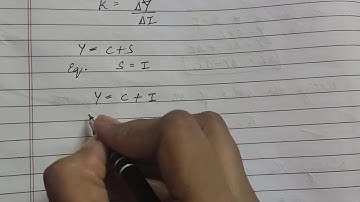 K = ΔY / ΔI
Y = C + S
Eq. S = I
Y = C + I